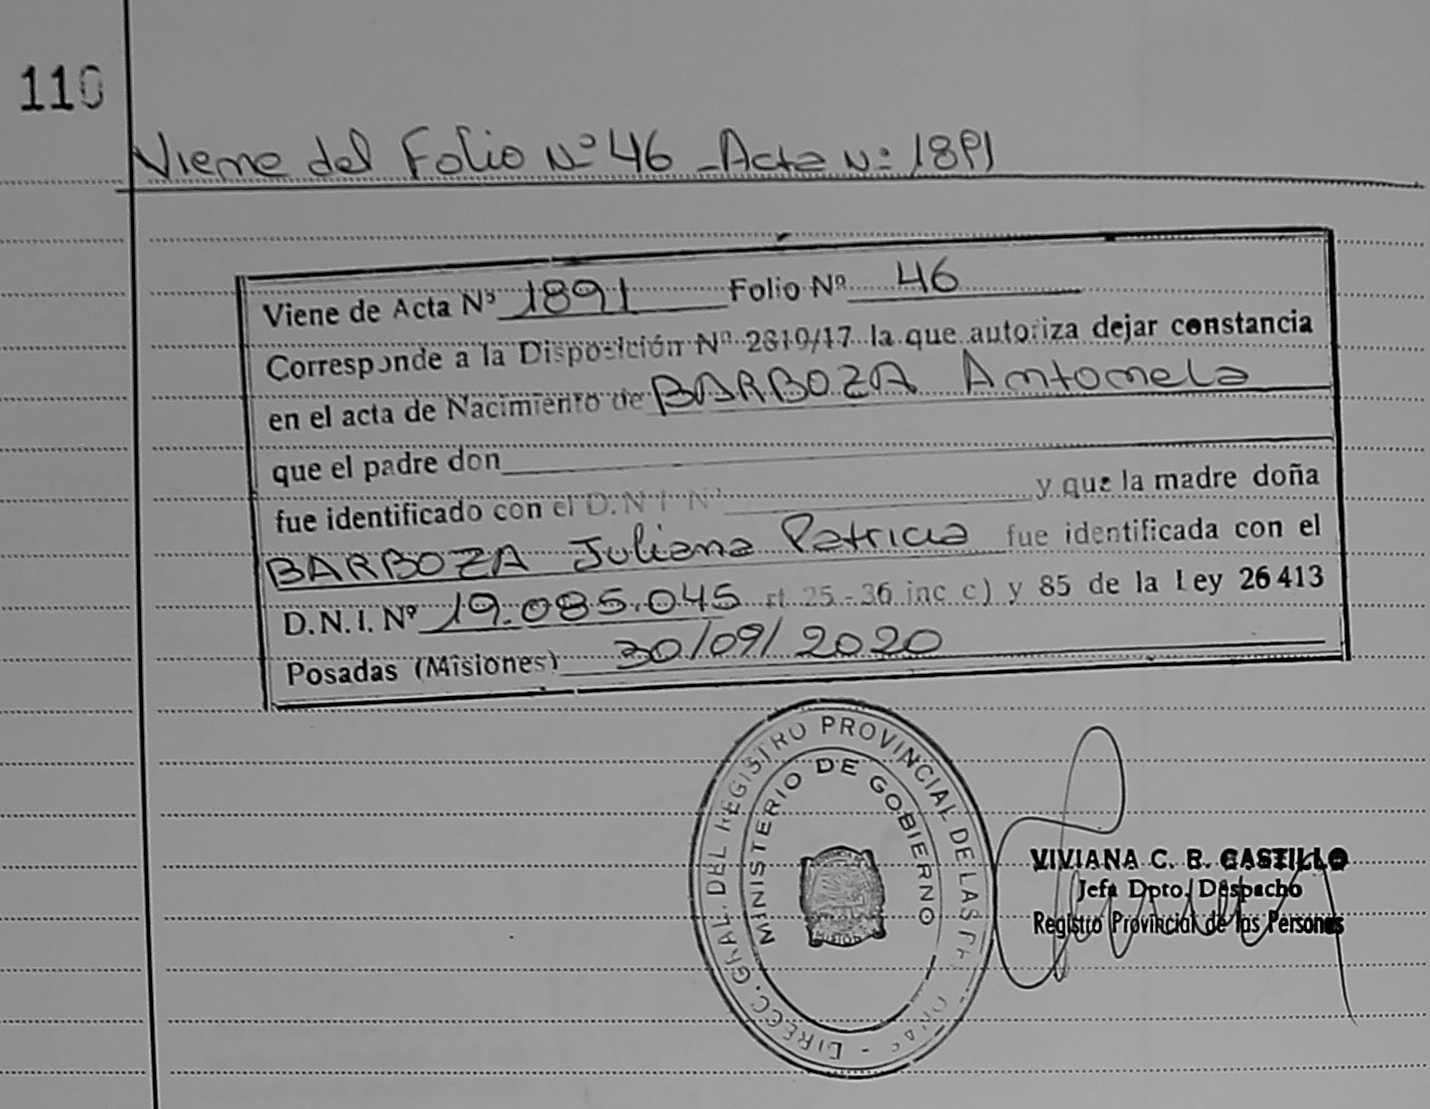 110
Viene del Folio Nº 46 - Acta Nº 1891
Viene de Acta Nº 1891 Folio Nº 46
Corresponde a la Disposición Nº 2810/17 la que autoriza dejar constancia
en el acta de Nacimiento de BARBOZA Antonela
que el padre don
fue identificado con el D.N.I. Nº y que la madre doña
BARBOZA Juliana Patricia fue identificada con el
D.N.I. Nº 19.085.045 rt 25-36 inc c) y 85 de la Ley 26413
Posadas (Misiones) 30/09/2020
DIRECC. GRAL. DEL REGISTRO PROVINCIAL DE LAS
MINISTERIO DE GOBIERNO
VIVIANA C. B. CASTILLO
Jefa Dpto. Despacho
Registro Provincial de las Personas